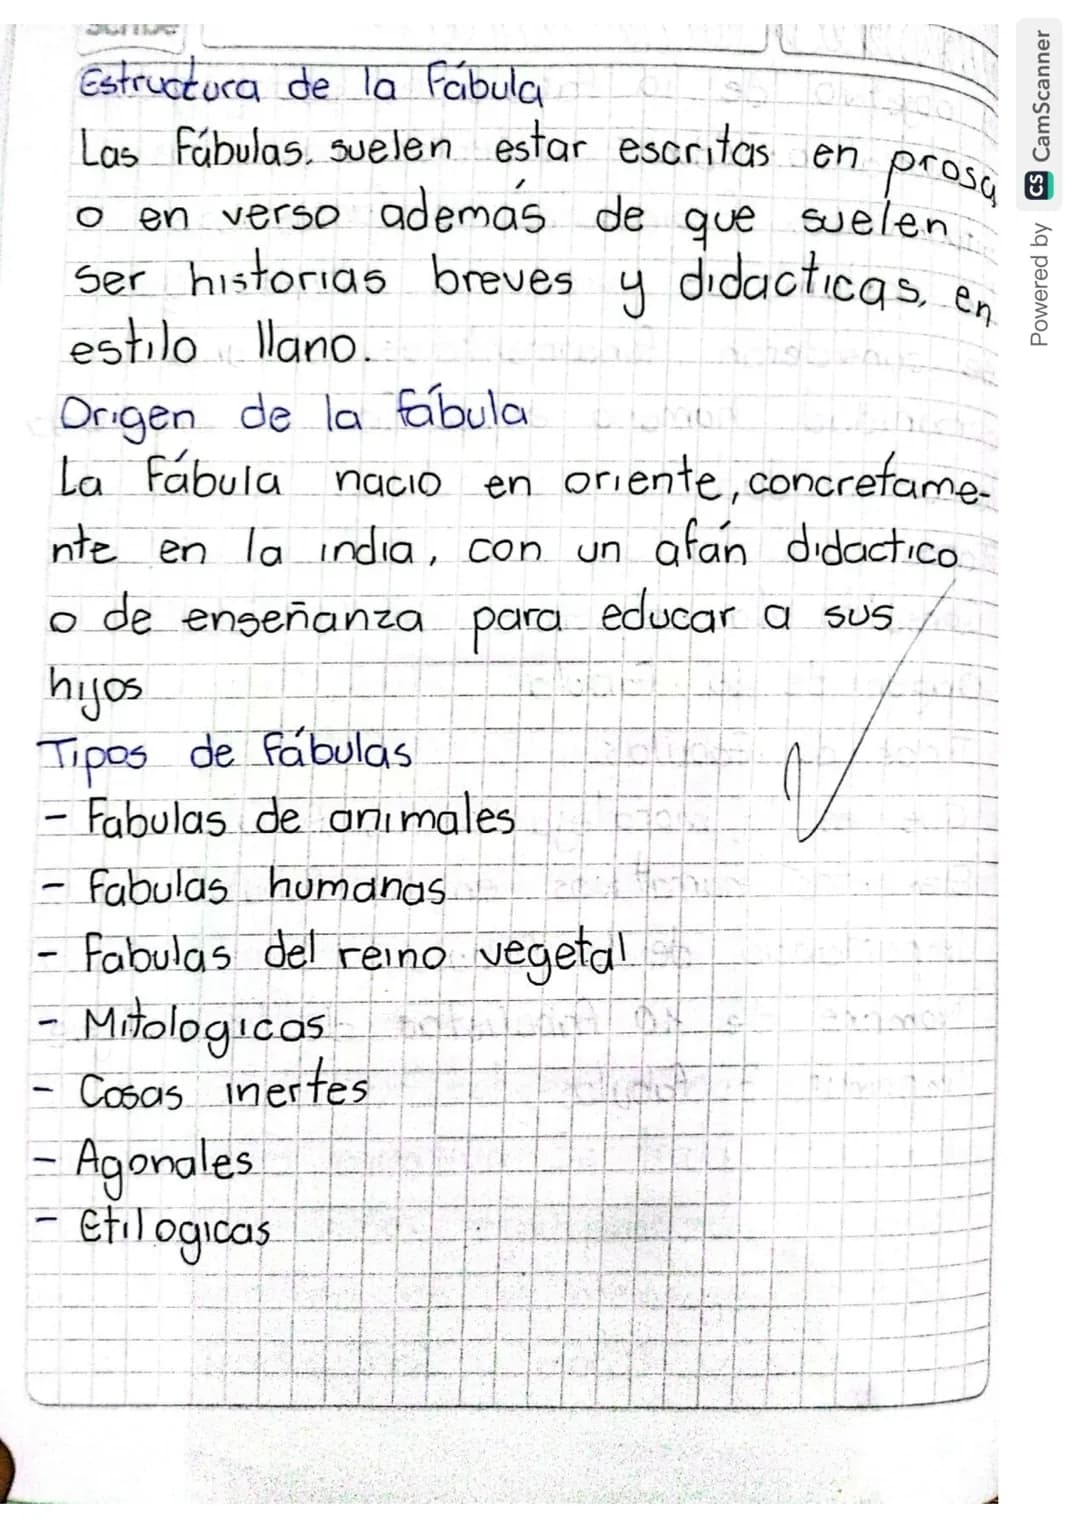 Scribe
Estructura de la Fábula
Las Fábulas. suelen estar escritas en prosa
o en verso además de que suelen
ser historias breves y didacticas, en
estilo llano.
Origen de la fábula
La Fábula nacio en oriente, concretame-
nte en la india, con un afán didactico
o de enseñanza para educar a sus
hijos
Tipos de Fábulas
- Fabulas de animales
- Fabulas humanas
- Fabulas del reino vegetal
- Mitologicas
- Cosas inertes
- Agonales
- Etilogicas
Powered by CS CamScanner